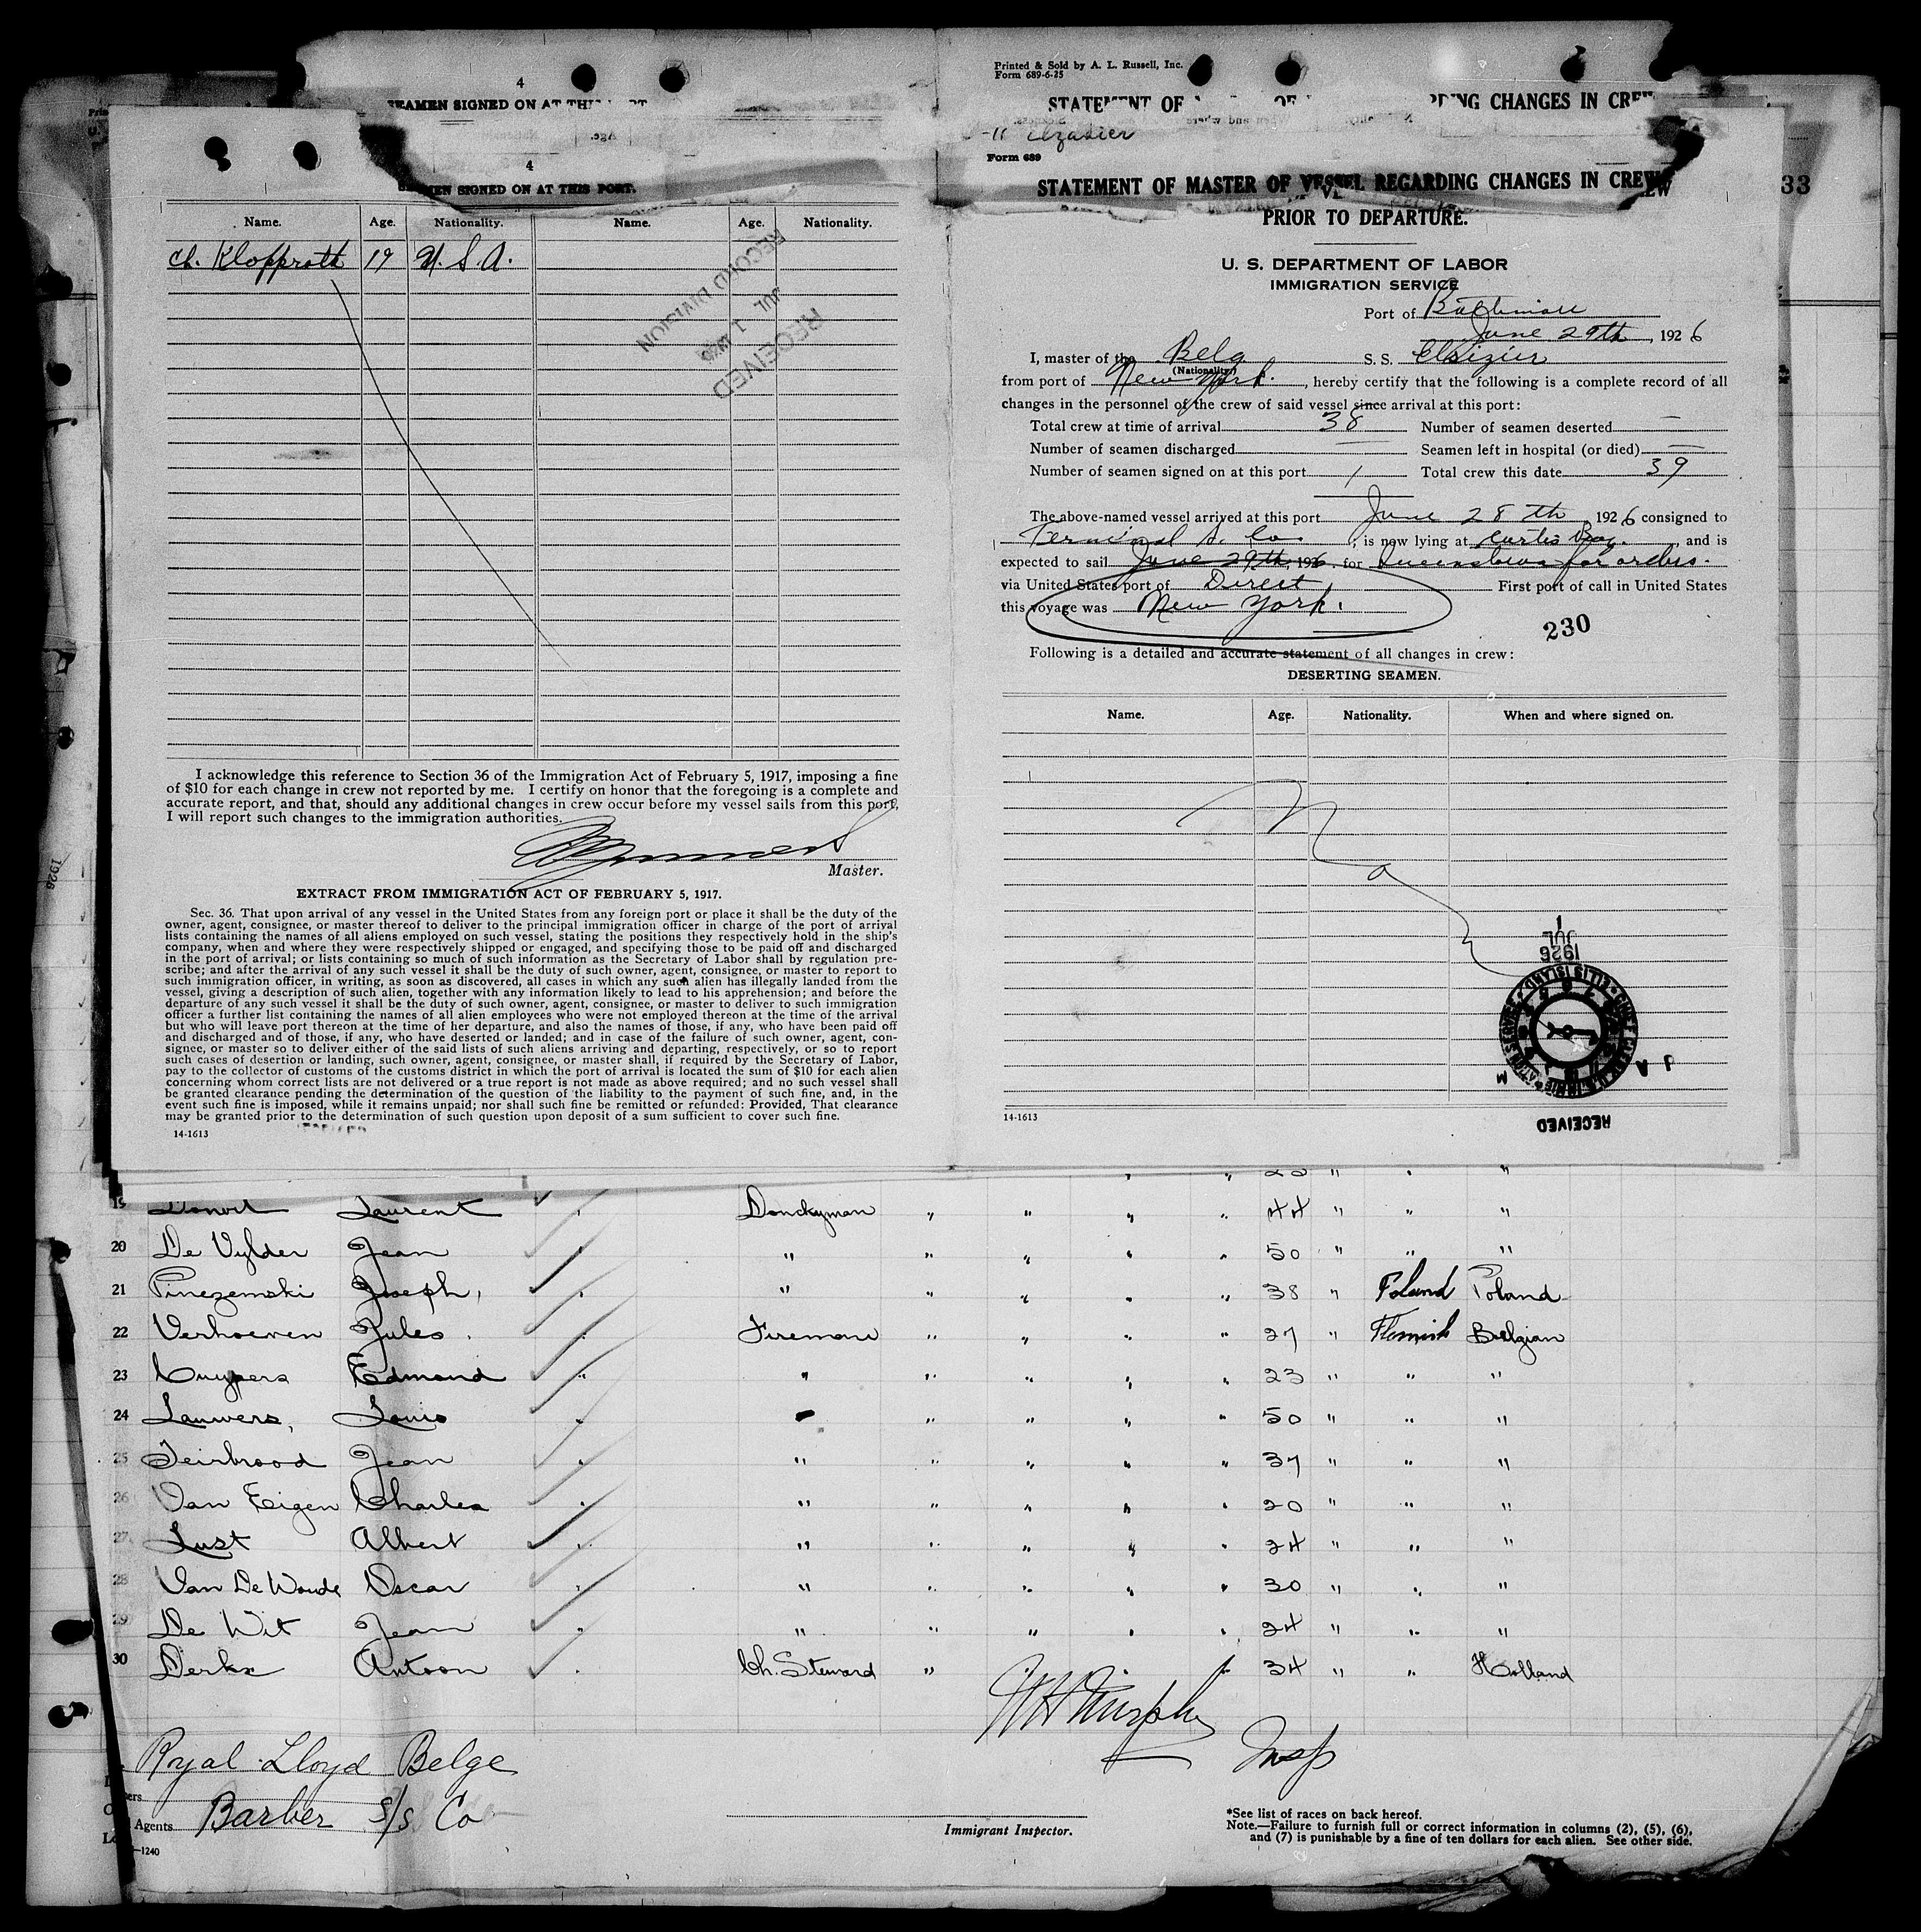 4
SEAMEN SIGNED ON AT THIS PORT
4
SEAMEN SIGNED ON AT THIS PORT.
Name. Age. Nationality. Name. Age. Nationality.
Ch. Klopprath 19 U. S. A.
RECEIVED
JUL 1 1926
RECORD DIVISION
I acknowledge this reference to Section 36 of the Immigration Act of February 5, 1917, imposing a fine
of $10 for each change in crew not reported by me. I certify on honor that the foregoing is a complete and
accurate report, and that, should any additional changes in crew occur before my vessel sails from this port,
I will report such changes to the immigration authorities.
Master.
EXTRACT FROM IMMIGRATION ACT OF FEBRUARY 5, 1917.
Sec. 36. That upon arrival of any vessel in the United States from any foreign port or place it shall be the duty of the
owner, agent, consignee, or master thereof to deliver to the principal immigration officer in charge of the port of arrival
lists containing the names of all aliens employed on such vessel, stating the positions they respectively hold in the ship's
company, when and where they were respectively shipped or engaged, and specifying those to be paid off and discharged
in the port of arrival; or lists containing so much of such information as the Secretary of Labor shall by regulation pre-
scribe; and after the arrival of any such vessel it shall be the duty of such owner, agent, consignee, or master to report to
such immigration officer, in writing, as soon as discovered, all cases in which any such alien has illegally landed from the
vessel, giving a description of such alien, together with any information likely to lead to his apprehension; and before the
departure of any such vessel it shall be the duty of such owner, agent, consignee, or master to deliver to such immigration
officer a further list containing the names of all alien employees who were not employed thereon at the time of the arrival
but who will leave port thereon at the time of her departure, and also the names of those, if any, who have been paid off
and discharged and of those, if any, who have deserted or landed; and in case of the failure of such owner, agent, con-
signee, or master so to deliver either of the said lists of such aliens arriving and departing, respectively, or so to report
such cases of desertion or landing, such owner, agent, consignee, or master shall, if required by the Secretary of Labor,
pay to the collector of customs of the customs district in which the port of arrival is located the sum of $10 for each alien
concerning whom correct lists are not delivered or a true report is not made as above required; and no such vessel shall
be granted clearance pending the determination of the question of the liability to the payment of such fine, and, in the
event such fine is imposed, while it remains unpaid; nor shall such fine be remitted or refunded: Provided, That clearance
may be granted prior to the determination of such question upon deposit of a sum sufficient to cover such fine.
14-1613
Printed & Sold by A. L. Russell, Inc.
Form 689-6-25
STATEMENT OF OF RDING CHANGES IN CREW
Form 689
STATEMENT OF MASTER OF VESSEL REGARDING CHANGES IN CREW
PRIOR TO DEPARTURE.
33
U. S. DEPARTMENT OF LABOR
IMMIGRATION SERVICE
Port of Baltimore
June 29th, 1926
I, master of the Belg S. S.
(Nationality)
from port of New York. , hereby certify that the following is a complete record of all
changes in the personnel of the crew of said vessel since arrival at this port:
Total crew at time of arrival 38 Number of seamen deserted —
Number of seamen discharged — Seamen left in hospital (or died) —
Number of seamen signed on at this port 1 Total crew this date 39
The above-named vessel arrived at this port June 28th, 1926 consigned to
Terminal S. Co. , is now lying at Curtis Bay. , and is
expected to sail June 29th, 1926. for Queenstown for orders.
via United States port of Direct First port of call in United States
this voyage was New York.
230
Following is a detailed and accurate statement of all changes in crew:
DESERTING SEAMEN.
Name. Age. Nationality. When and where signed on.
JUL 1
1926
RECEIVED
14-1613
19 Laurent Donckyman " " " " 44 " " "
20 De Vylder Jean " " " " " 50 " " "
21 Pinezemski Joseph, " " " " " 38 " Poland Poland
22 Verhoeven Jules. Firemen " " " " 27 " Flemish Belgian
23 Cuypers Edmond " " " " " 23 " " "
24 Lauwers, Louis " " " " " 50 " " "
25 Teirbrood Jean " " " " " 37 " " "
26 Van Eigen Charles " " " " " 20 " " "
27 Lust Albert " " " " " 24 " " "
28 Van De Woude Oscar " " " " " 30 " " "
29 De Wit Jean " " " " " 24 " " "
30 Derkx Antoon Ch. Steward " " " " 34 " " Holland
Murphy Insp
Royal Lloyd Belge
Agents Barber s/s Co
Immigrant Inspector.
*See list of races on back hereof.
Note.—Failure to furnish full or correct information in columns (2), (5), (6),
and (7) is punishable by a fine of ten dollars for each alien. See other side.
-1240
1926